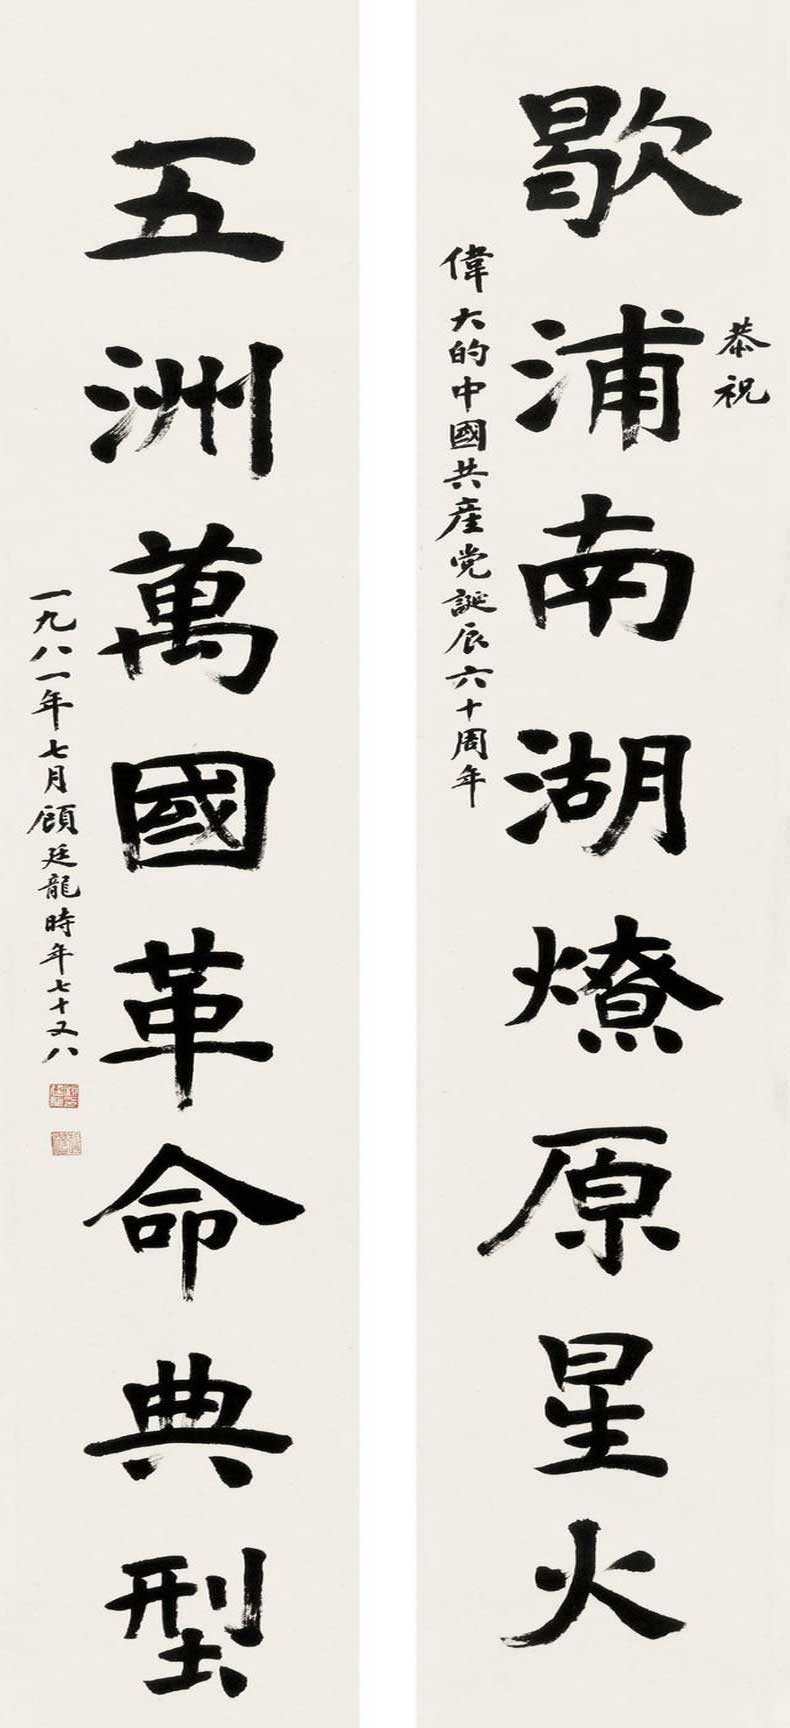 恭祝
歇浦南湖燎原星火
偉大的中國共産党誕辰六十周年
五洲萬國革命典型
一九八一年七月顧廷龍時年七十又八